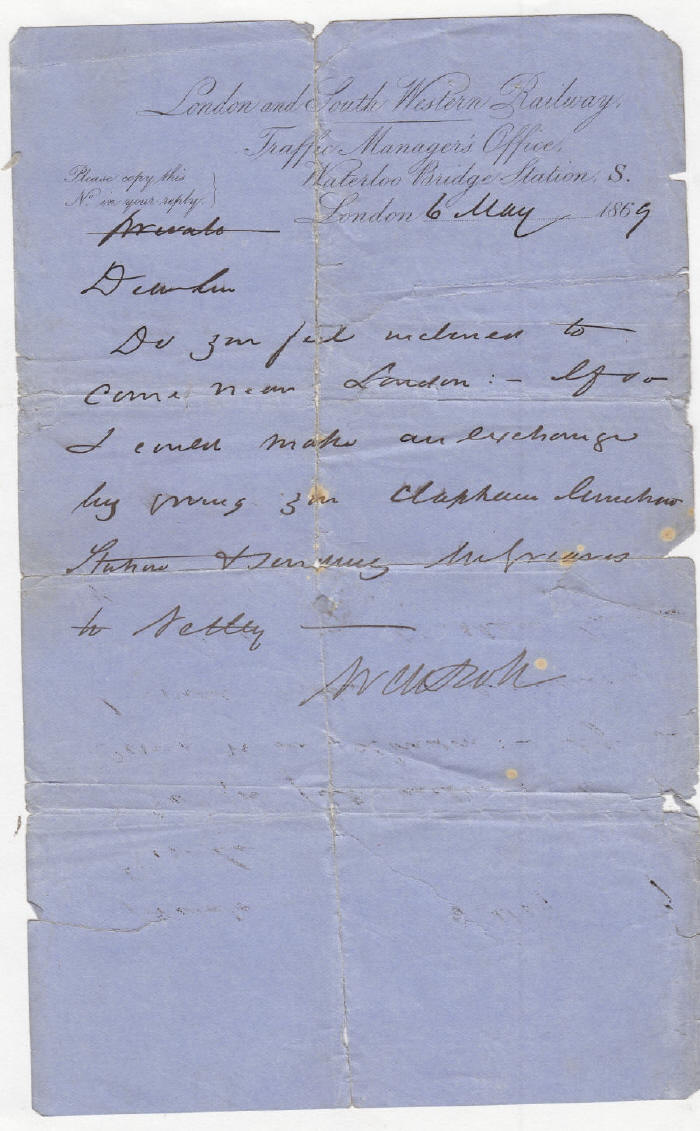 London and South Western Railway,
Traffic Manager's Office,
Waterloo Bridge Station, S.
Please copy this
No. in your reply.
London 6 May 1869
Private
Dear Sir
Do you feel inclined to
come near London :- If so
I could make an exchange
by giving you Clapham Junction
Station & sending Mr Greaves
to Netley